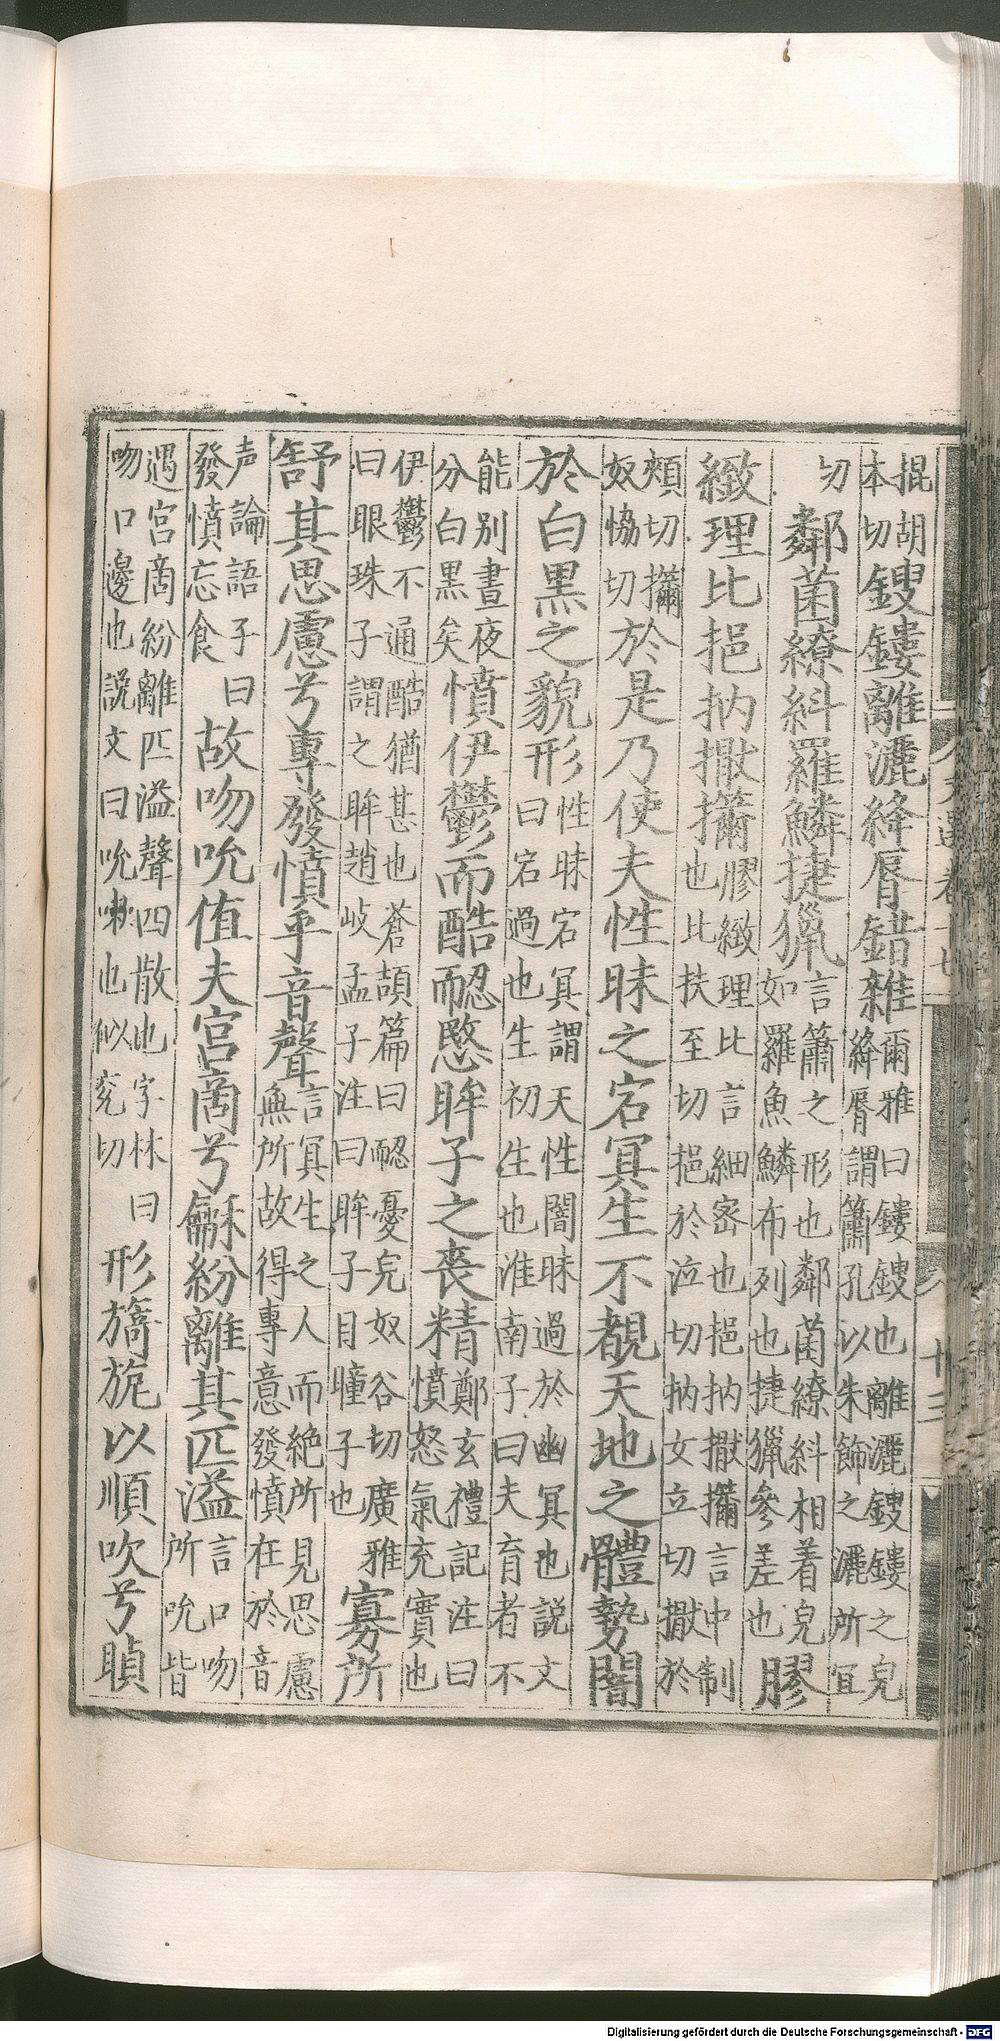 掍胡本切鎪鏤離灑絳脣錯雜爾雅曰鏤鎪也離灑鎪鏤之皃絳脣謂簫孔以朱飾之灑所宜
切鄰菌繚糾羅鱗捷獵言簫之形也鄰菌繚糾相着皃如羅魚鱗布列也捷獵參差也膠
緻理比挹抐擫㩶膠緻理比言細密也挹抐擫㩶言中制也比扶至切挹於泣切抐女立切擫於
頰切㩶奴恊切於是乃使夫性昧之宕冥生不覩天地之體勢闇
於白黑之貌形性昧宕冥謂天性闇昧過於幽冥也説文曰宕過也生初生也淮南子曰夫育者不
能别晝夜分白黑矣憤伊鬱而酷䎡愍眸子之喪精鄭玄禮記注曰憤怒氣充實也
伊鬱不通酷猶甚也蒼頡篇曰䎡憂皃奴谷切廣雅曰眼珠子謂之眸趙岐孟子注曰眸子目瞳子也寡所
舒其思慮兮專發憤乎音聲言冥生之人而絶所見思慮無所故得專意發憤在於音
声論語子曰發憤忘食故吻吮值夫宮商兮龢紛離其匹溢言口吻所吮皆
遇宮商紛離匹溢聲四散也字林曰吻口邊也説文曰吮嗽也似兖切形旖旎以順吹兮瞋
Digitalisierung gefördert durch die Deutsche Forschungsgemeinschaft - DFG